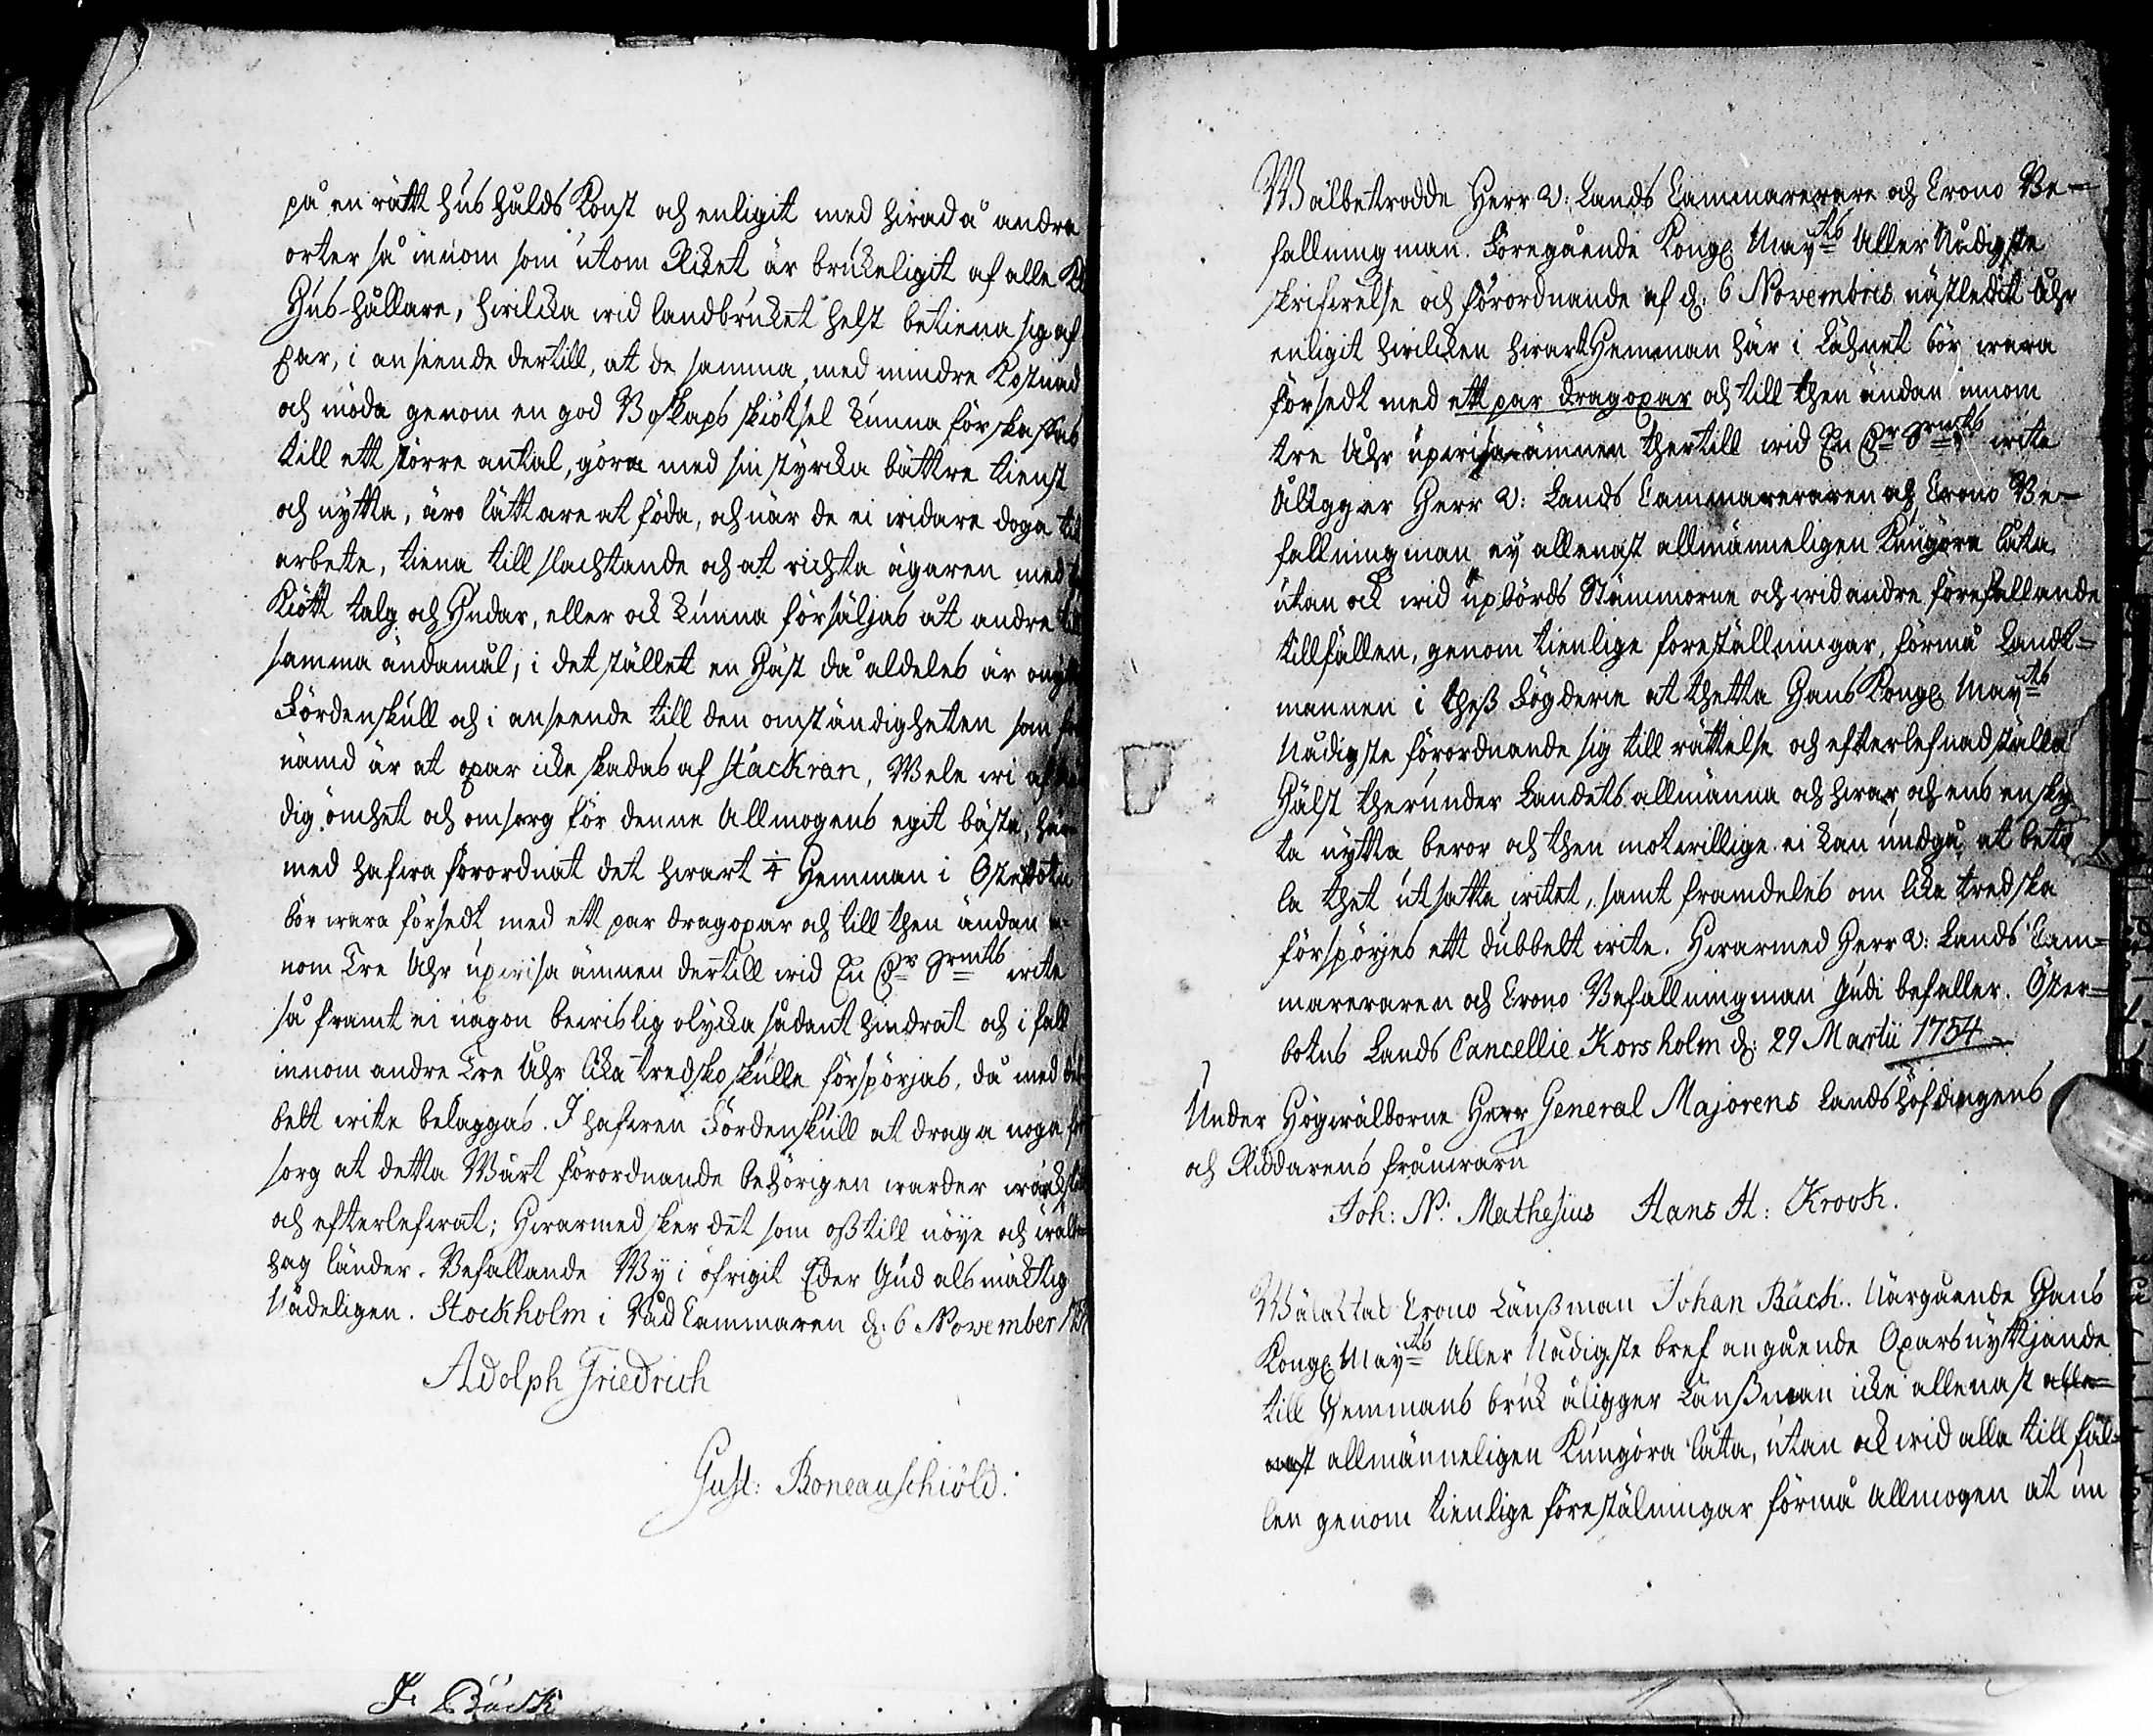 på en rätt hushålds Konst och enligit med hwad å andra
orter så innom som utom Riket är brukeligit af alle
Hus-hållare, hwilcka wid landbruket helst betiena sig af
oxar, i anseende dertill, at de samma, med mindre Kostnad
och möda genom en god Boskaps skiötsel kunna förskaffas
till ett större antal, göra med sin styrcka bättre tienst
och nytta, äro lättare at föda, och när de ei widare doga til
arbete, tiena till slachtande och at richta ägaren med
Kiött talg och Hudar, eller ock kunna försäljas åt andre till
samma ändamål; i det stället en Häst då aldeles är
Fördenskull och i anseende till den omständigheten som
nämd är at oxar icke skadas af stackran, Wele wi af
dig ömhet och omsorg för denne Allmogens egit bästa, här
med hafwa förordnat det hwart ¼ Hemman i Österbotn
bör wara försedt med ett par dragoxar och till then ändan in-
nom Tre Åhr upwisa ämnen dertill wid En Dr Srmts wite
så framt ei någon bewislig olycka sådant hindrat och i fall
innom andre Tre Åhr lika tredsko skulle förspörjas, då med dub-
belt wite beläggas. I hafwen Fördenskull at draga noga för
sorg at detta Wårt förordnande behörigen warder wärckstält
och efterlefwat; Hwarmed sker det som oss till nöye och wälbe-
hag länder. Befallande Wÿ i öfrigit Eder Gud alsmäktig
Nådeligen. Stockholm i Råd Cammaren d: 6 November
Adolph Friedrich
Gust: Boneauschiöld.
J: Bäck
Wälbetrodde Herr v: Lands Cammererare och Crono Be-
fallningman. Föregående Kongl Mayts Aller Nådigste
skrifwelse och förordnande af d: 6 Novembris nästledit Åhr
enligit hwilcken hwart Hemman här i Lähnet bör wara
försedt med ett par dragoxar och till then ändan innom
tre Åhr upwisa ämnen thertill wid En Dr Srmts wite
Åligger Herr v: Lands Cammereraren och Crono Be-
fallningman eÿ allenast allmänneligen Kungöra låta,
utan ock wid upbörds Stämmorne och wid andre förefallande
tillfällen, genom tienlige föreställningar, förmå Landt-
mannen i thess Fögderie at thetta Hans Kongl Mayts
Nådigste förordnande sig till rättelse och efterlefnad ställa
Hälst therunder Landets allmänna och hwar och ens enskÿ-
ta nytta beror och then motwillige ei kan undgå at beta
la thet utsatta witet, samt framdeles om lika tredska
förspörjes ett dubbelt wite. Hwarmed Herr v: Lands Cam-
mereraren och Crono Befallningman Gudi befaller. Öster-
botns Lands Cancellie Korsholm d: 29 Martii 1754
Under Högwälborne Herr General Majorens Landshöfdingens
och Riddarens frånwaru
Joh: N: Mathesius Hans H: Krook.
Wälaktad Crono Länssman Johan Bäck. Närgående Hans
Kongl Mayts Aller Nådigste bref angående Oxars nyttjande
till Hemmans bruk åligger Länssman icke allenast alle-
nast allmänneligen Kungöra låta, utan ock wid alla till fäl-
len genom tienlige förestälningar förmå Allmogen at un